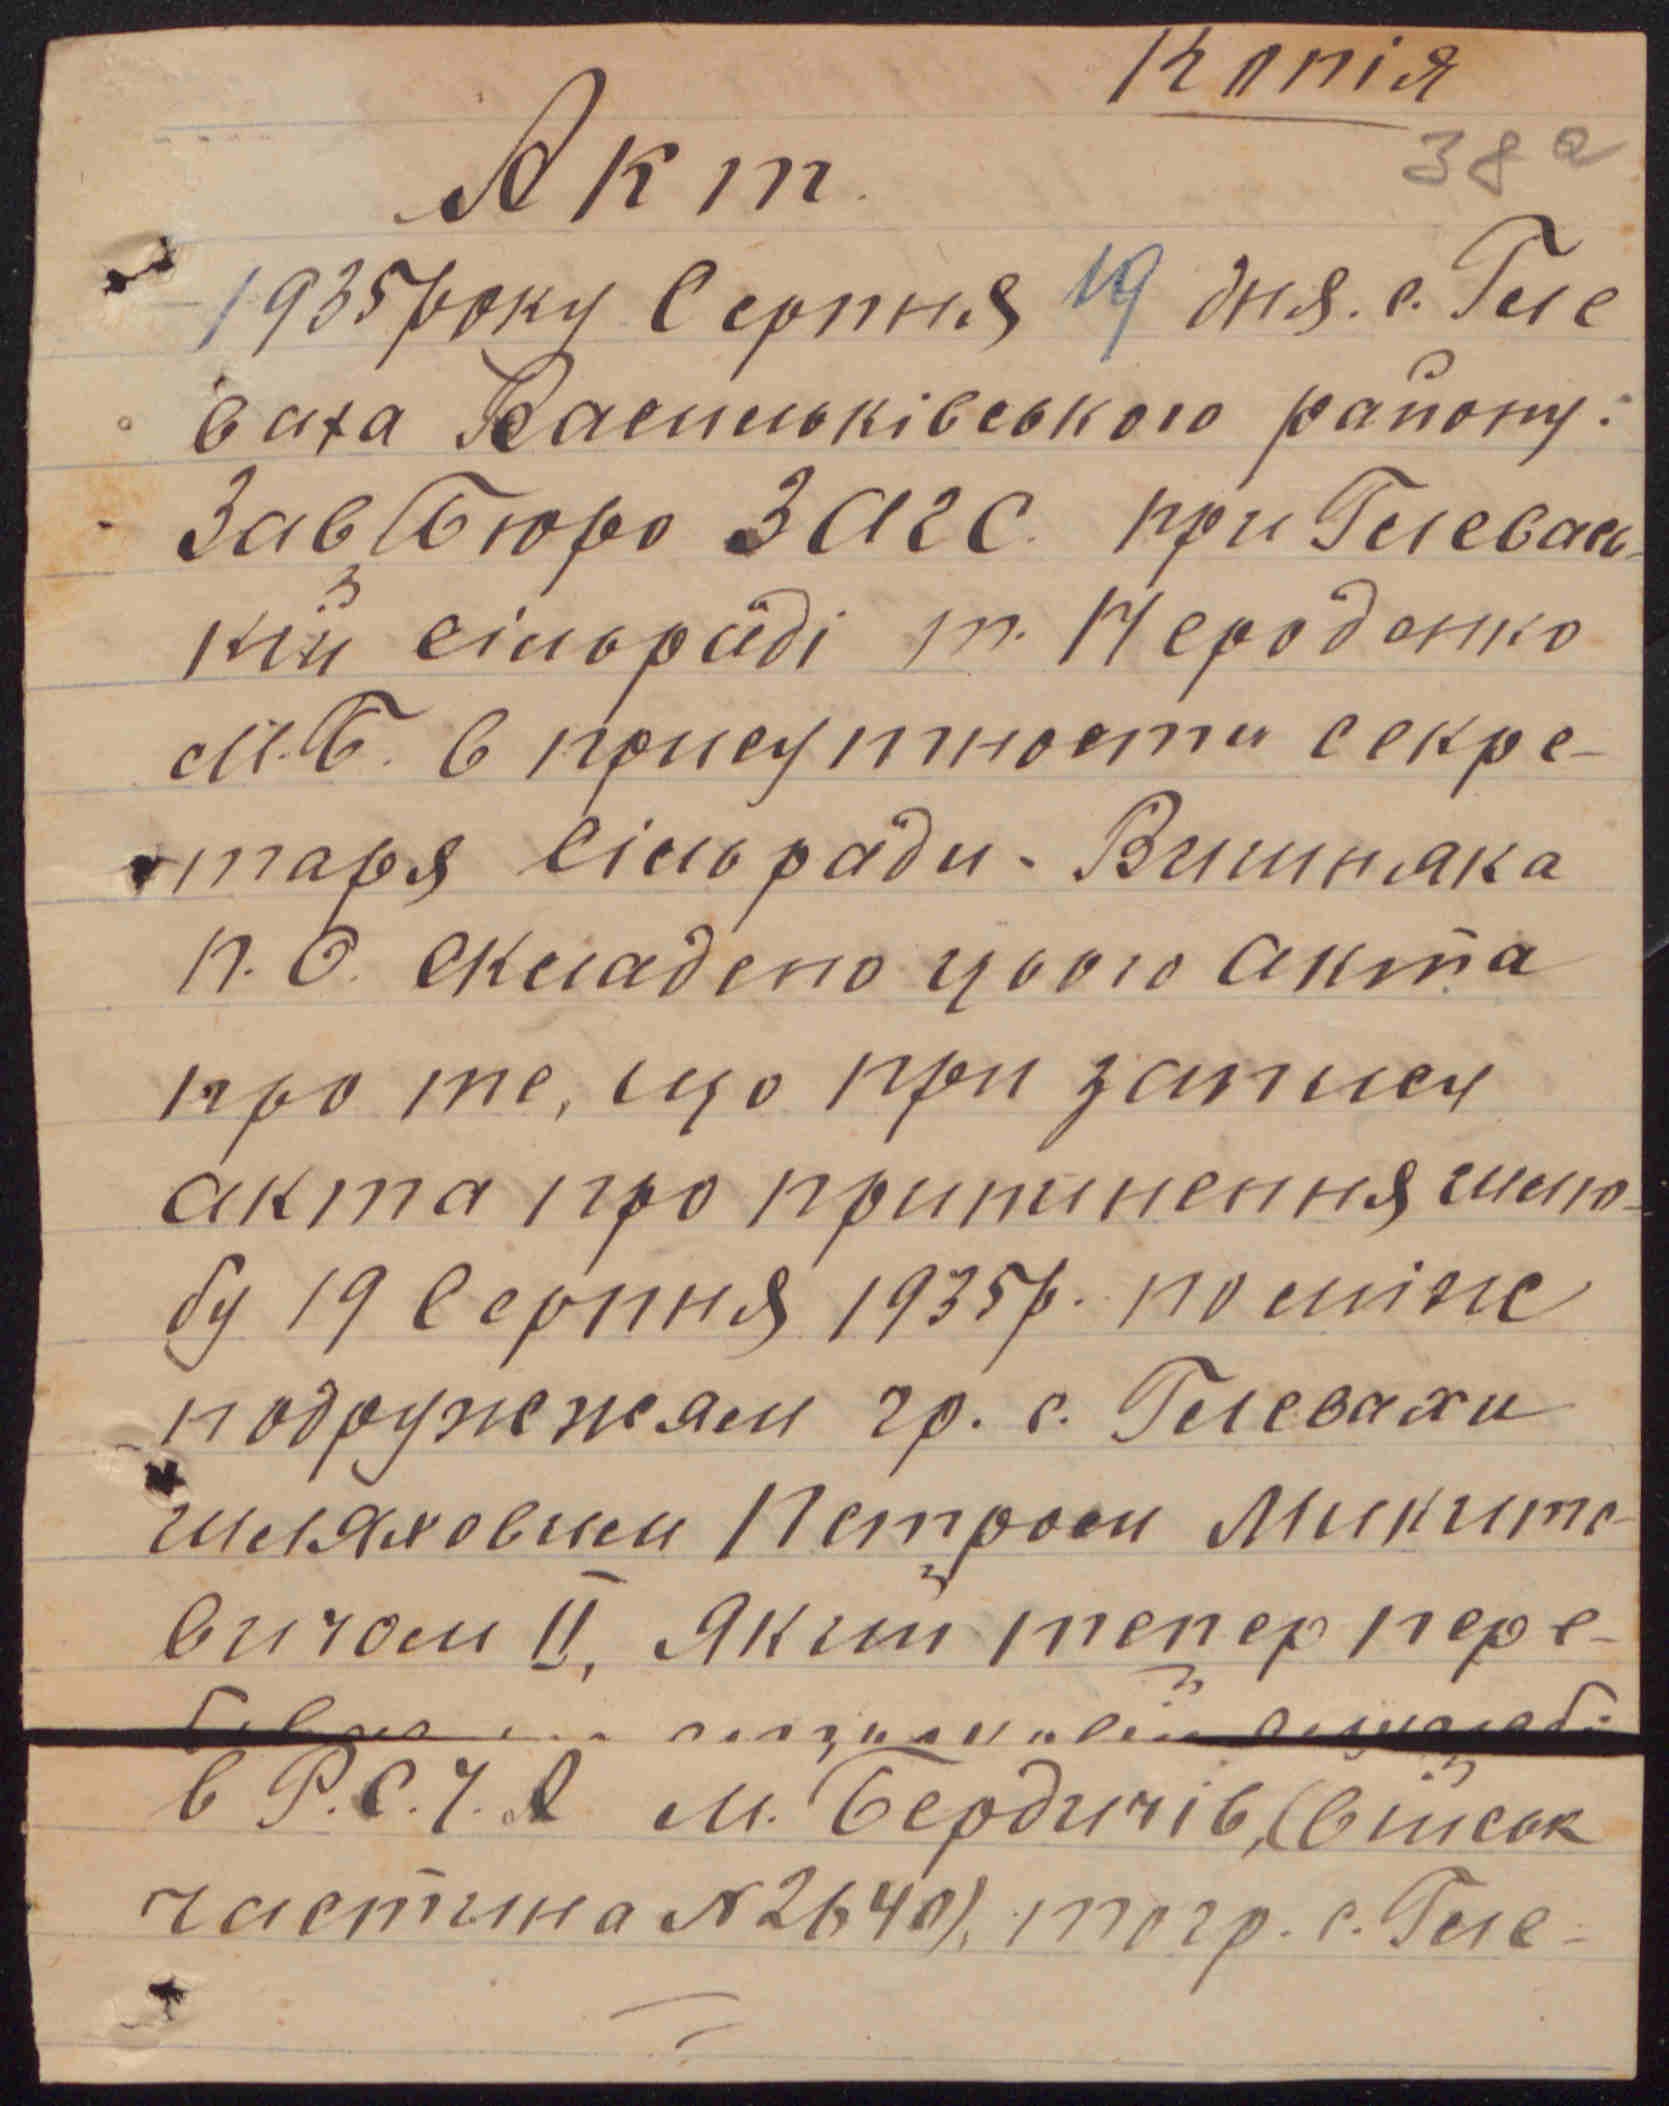 Копія
38а
Акт.
1935 року Серпня 19 дня. с. Гле
ваха Васильківського району:
Зав Бюро ЗАГС. при Глевась-
кій сільраді т. Нероденко
М.Б. в присутности секре-
таря Сільради - Вишняка
П.О. складено цього акта
про те, що при запису
акта про припинення шлю-
бу 19 Серпня 1935р. поміж
подружжям гр. с. Глевахи
Шляховим Петром Микито-
вичом II, який тепер пере-
в Р.С.Ч.А м. Бердичів, (військ
частина №2640), та гр. с. Гле-